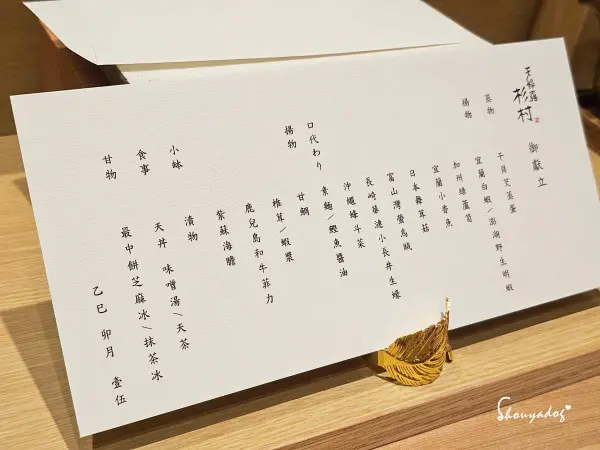 杉村
御献立
蒸物 干貝芡蒸蛋
揚物 宜蘭白蝦/澎湖野生明蝦
加州綠蘆筍
宜蘭小香魚
日本舞茸菇
富山灣螢烏賊
長崎暴漣小長井生蠔
沖繩蜂斗菜
口代わり 素麵/鰹魚醬油
揚物 甘鯛
椎茸/蝦漿
鹿兒島和牛菲力
紫蘇海膽
小鉢 漬物
食事 天丼 味噌湯/天茶
甘物 最中餅芝麻冰/抹茶冰
乙巳 卯月 壹伍
Shouyadog